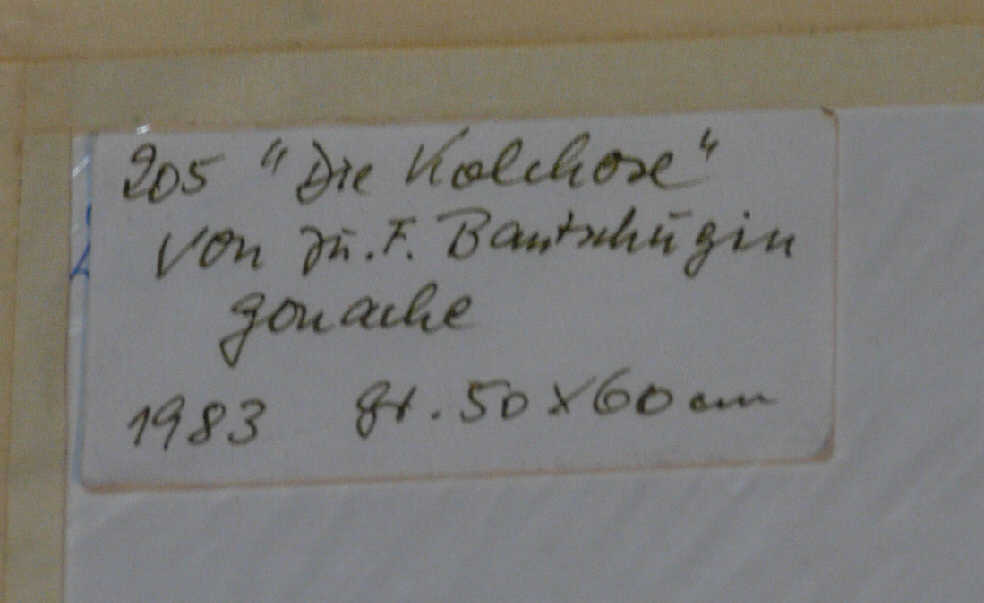 205 "Die Kolchose"
von Ju. F. Bantschugin
gouache
1983 gr. 50 x 60 cm